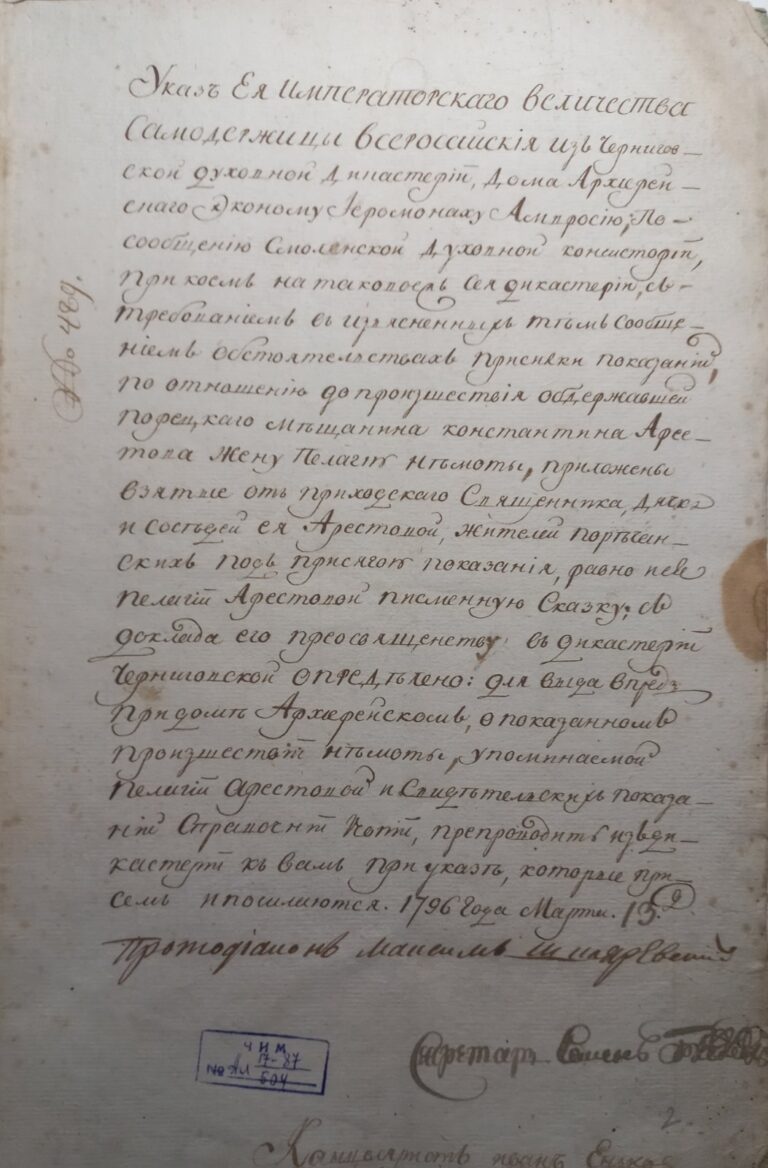 Указъ Ея Императорскаго величества
Самодержицы Всеросійскія изъ Чернигов–
ской духовной Дикастеріи, Дома Архіерей–
скаго Эконому Іеромонаху Амвросію; По–
сообщенію Смоленской духовной консисторіи,
при коемъ на таковоежъ сея дикастеріи, съ–
требованіемъ въ изъясненныхъ тѣмъ сообще–
ніемъ обстоятельствахъ присяги показаній,
по отношенію до произшествія обдержавшей
порецкаго мѣщанина константина Арес–
това жену Пелагію нѣмоты, приложены
взятые отъ приходскаго Священника, дячка
и сосѣдей ея Арестовой, жителей порѣчан–
скихъ подъ присягою показанія, равно и ее
Пелагіи Арестовой писменную Сказку; съ
доклада его преосвященству въ дикастеріи
Черниговской опредѣлено: для вида впредь
при домѣ Архіерейскомъ, о показанномъ
произшествіи нѣмоты, упоминаемой
Пелагіи Арестовой и Свидѣтельскихъ показа–
ній Справочніи Копіи, препроводить изъ ди–
кастеріи къ вамъ при указѣ, которые при–
семъ и посилаются. 1796 Года Марта. 13 д
Протодіаконъ Максимъ
Секретарь Семенъ
Канцеляристъ Иванъ
№ 489.
ЧИМ
№ Ал 17-87
504
2